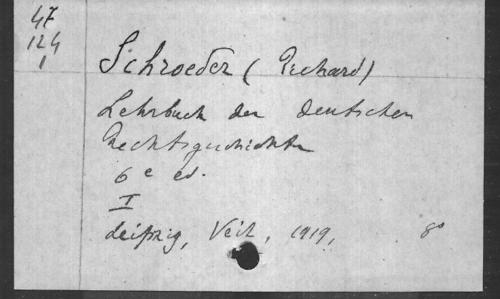 47
124
1
Schroeder (Richard)
Lehrbuch der deutschen
Rechtsgeschichte
6e ed.
I
Leipzig, Veit, 1919, 8°